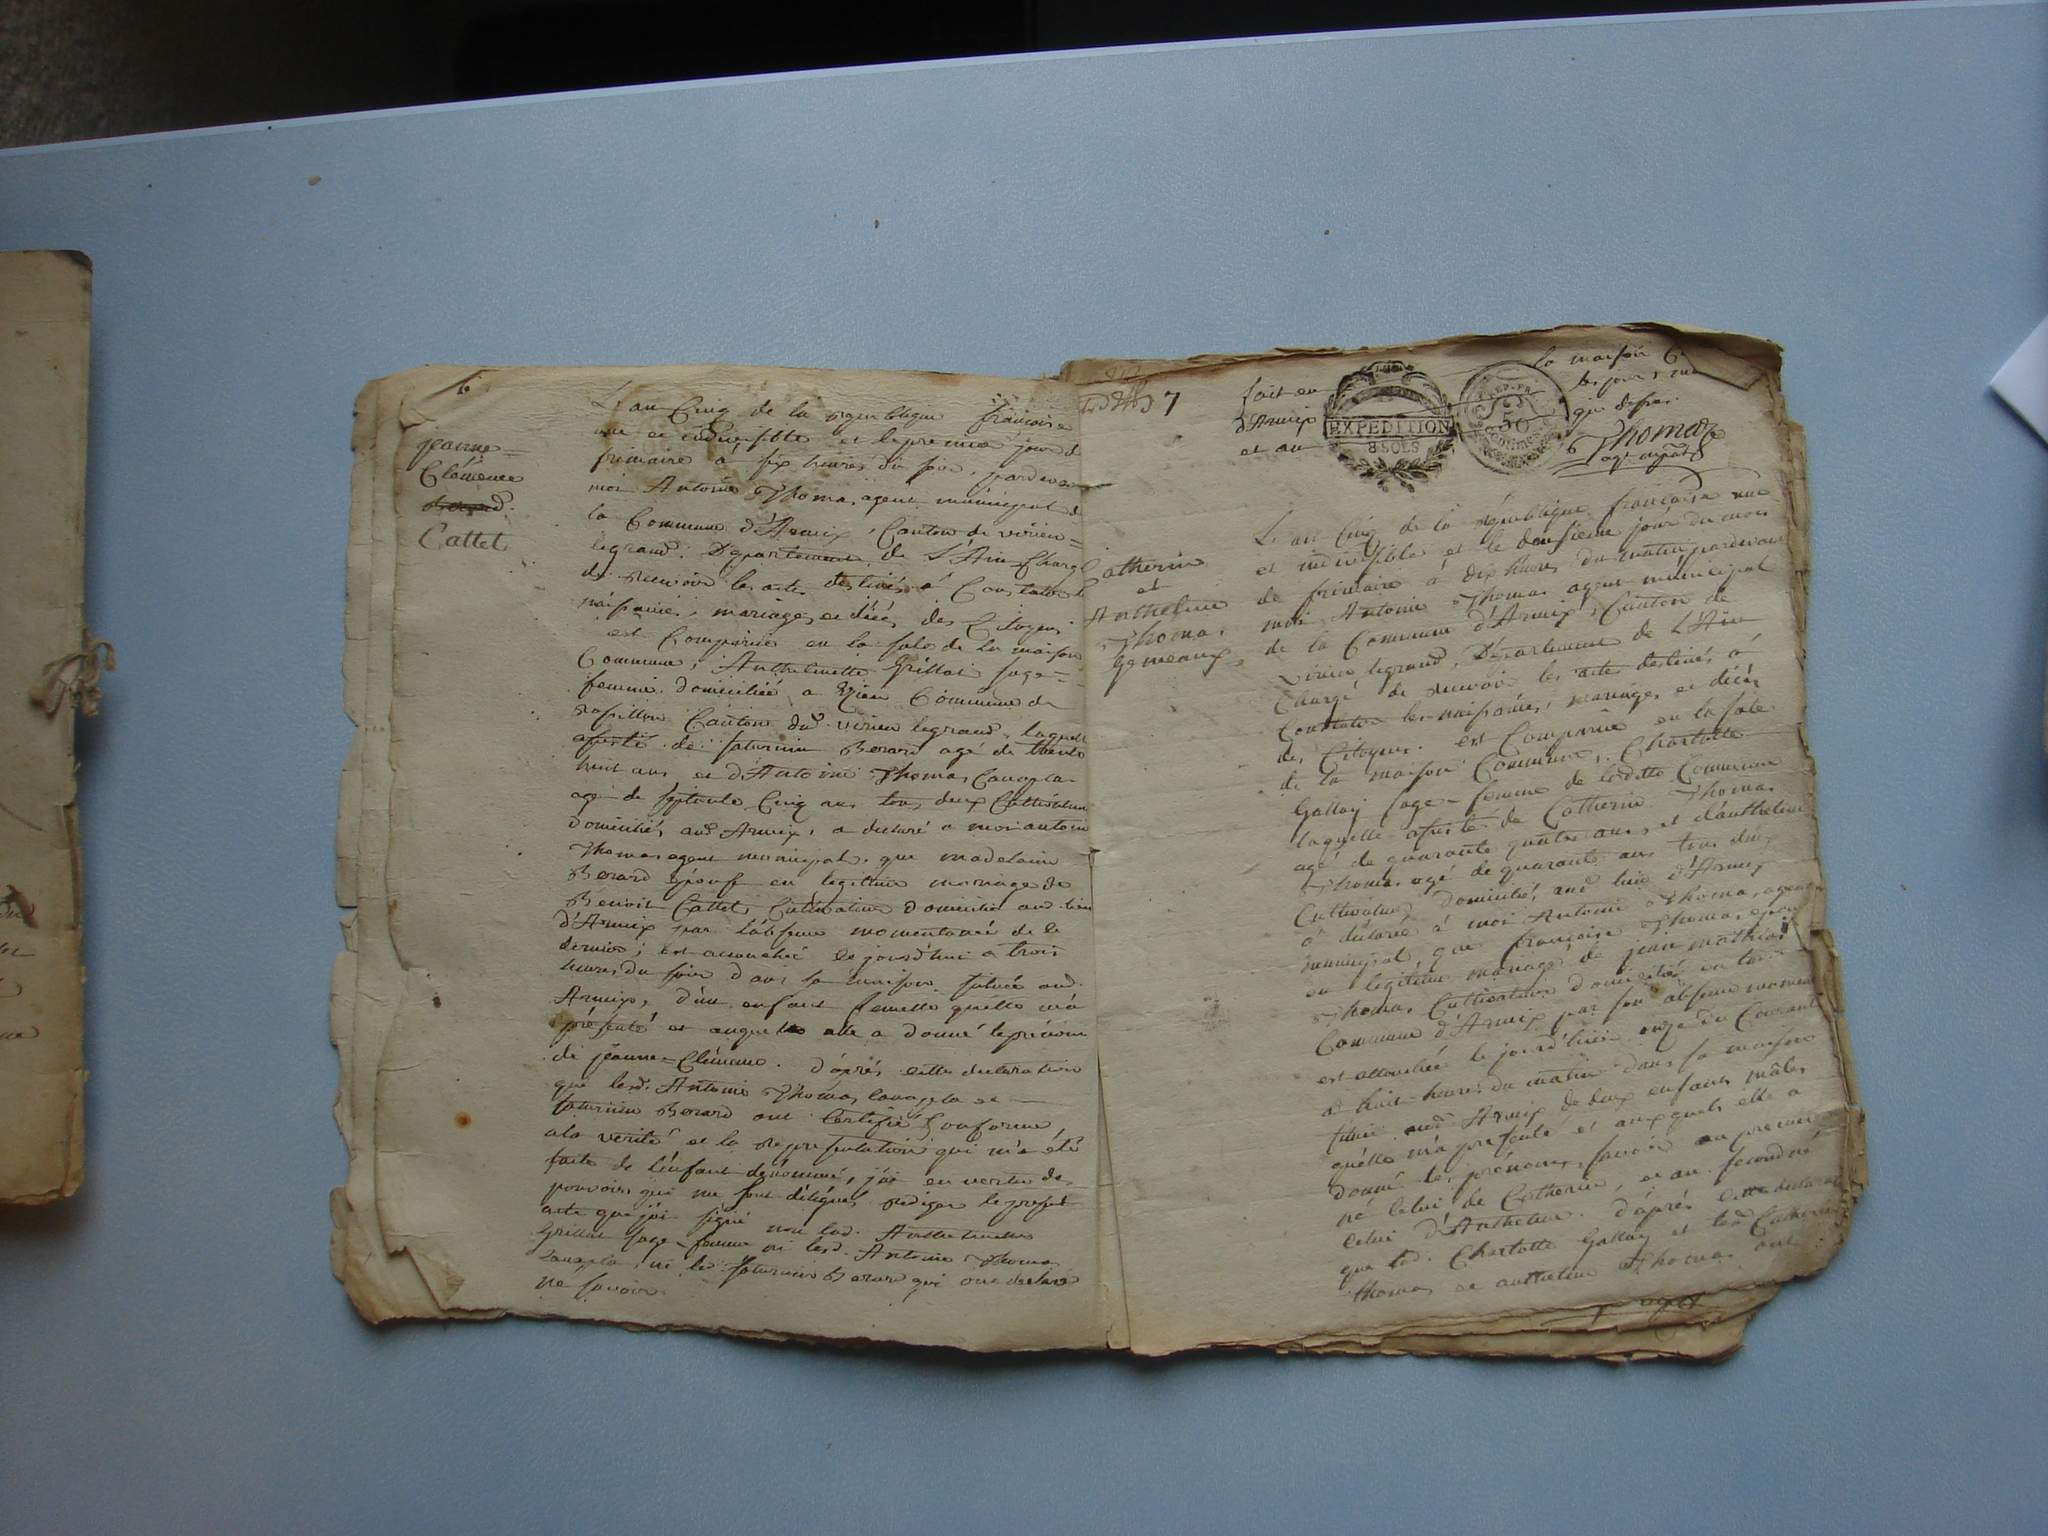 6
jeanne=
Clémence
Cattet
L'an Cinq de la republique françoise
une et indivisible et le premier jour de
frimaire à six heures du soir, pardevant
moi Antoine Thomas, agent municipal de
la Commune d'Armix, Canton de virieu=
legrand, Département de L'Ain Chargé
de recevoir les actes destinés à Constater les
naissances, mariages et décès des Citoyens
est Comparue en la sale de la maison
Commune, Anthelmette Grillat sage=
femme domiciliée a Egieu Commune de
rossillon Canton dud. virieu legrand, laquelle
assisté de saturnin Berard agé de trente
huit ans et d'Antoine Thomas
agé de septante Cinq ans tous deux Cultivateurs
domiciliés aud. Armix, a declaré a moi antoine
Thomas agent municipal, que madelaine
Berard épouse en legitime mariage de
Benoit Cattet, Cultivateur domicilié aud. lieu
d'Armix par l'absence momentanée de ce
dernier, est accouchée cejourd'hui a trois
heures du soir dans sa maison située aud.
Armix, d'un enfant femelle qu'elle m'a
présenté et auquel elle a donné le prénom
de jeanne=Clémence. d'après cette declaration
que lesd. Antoine Thomas et
saturnin Berard ont Certifié Conforme
a la verité et la representation qui m'a été
faite de l'enfant dénommé, j'ai en vertu des
pouvoirs qui me sont délégués rediger le present
acte que j'ai signé non lad. Anthelmette
Grillat sage-femme ni lesd. Antoine Thomas
ni led. saturnin Berard qui ont declaré
ne savoir.
7
fait en la maison
d'Armix les jours
et an que dessus.
EXPEDITION
8 SOLS
REP. FRA.
50
Centimes
Thomas
agt. mpal
Catherin
et
Anthelme
Thomas
Gemeaux
L'an Cinq de la république française une
et indivisible et le deusieme jour du mois
de frimaire à dix heures du matin pardevant
moi Antoine Thomas agent municipal
de la Commune d'Armix, Canton de
virieu legrand, Département de L'Ain
Chargé de recevoir les actes destinés à
Constater les naissances, mariages et décès
des Citoyens. est Comparue en la sale
de la maison Commune, Charlotte
Gallay sage-femme de ladette Commune
laquelle assisté de Catherin Thomas
agé de quarante quatre ans, et d'anthelme
Thomas agé de quarante ans tous deux
Cultivateurs domiciliés aud. lieu d'Armix
a déclaré à moi Antoine Thomas, agent
municipal, que françoise Thomas épouse
en legitime mariage de jean mathias
Thomas Cultivateur domicilié en lad.
Commune d'Armix par son absence momen
est accouchée le jourd'hier onze du Courant
à huit heures du matin dans sa maison
située aud. Armix de deux enfants mâles
qu'elle m'a presenté et auxquels elle a
donné les prénoms, savoir au premier
né Celui de Catherin, et au second né
celui d'Anthelme. d'après cette declarat
que lad. Charlotte Gallay et lesd. Catherin
thomas et anthelme Thomas ont